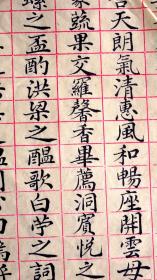 天朗氣清惠風和暢座開雲母
蔬果交羅馨香畢薦洞賓悅之
之盃酌洪梁之醞歌白苧之詞